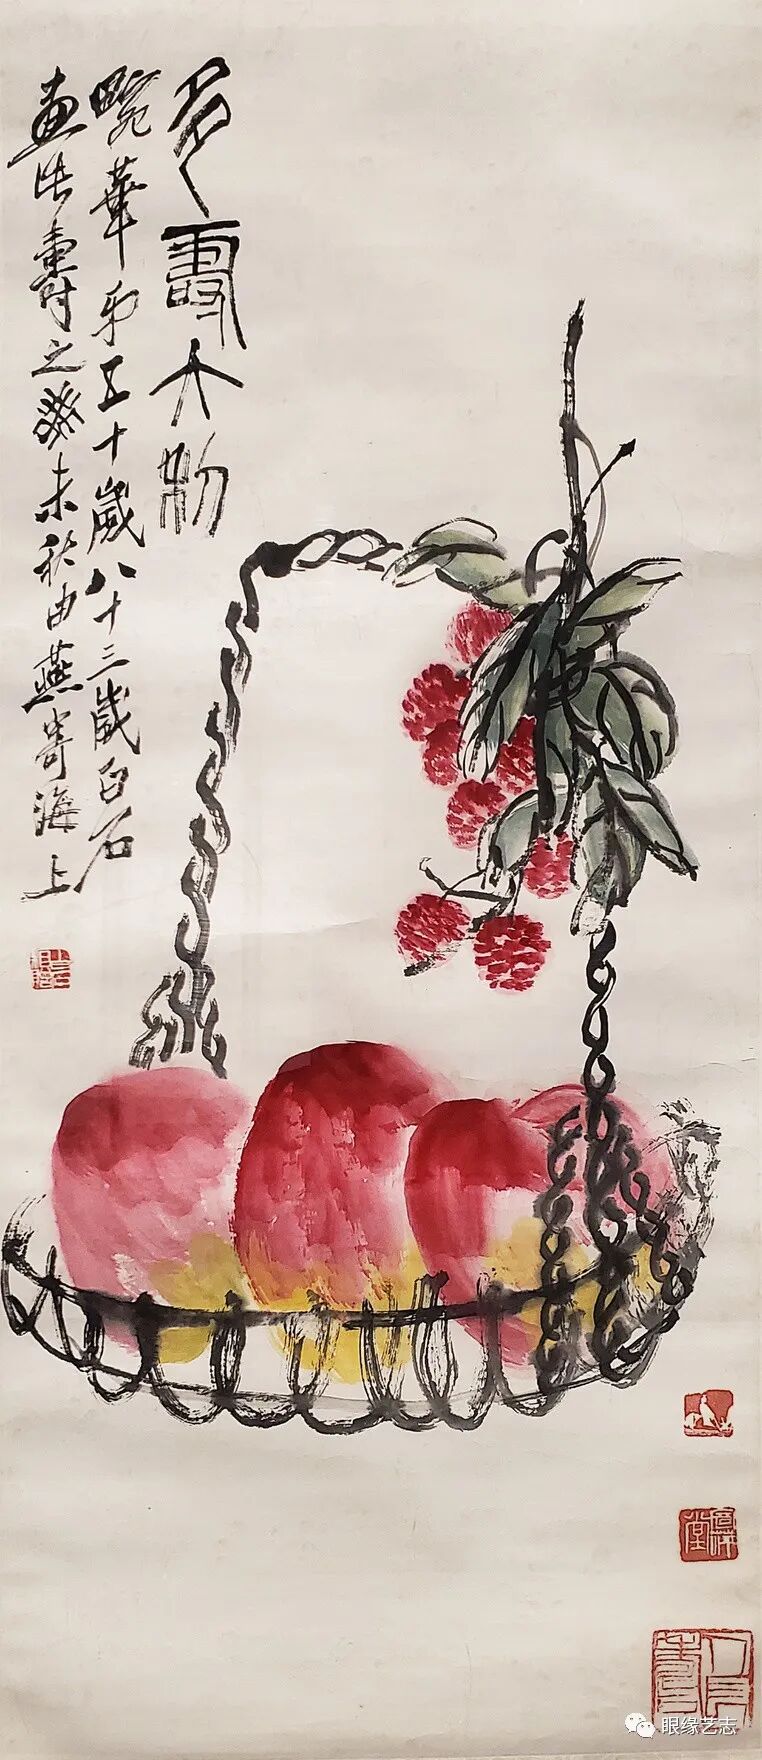 多壽大利
畹華弟五十歲八十三歲白石
畫此壽之癸未秋由燕寄海上
眼缘艺志